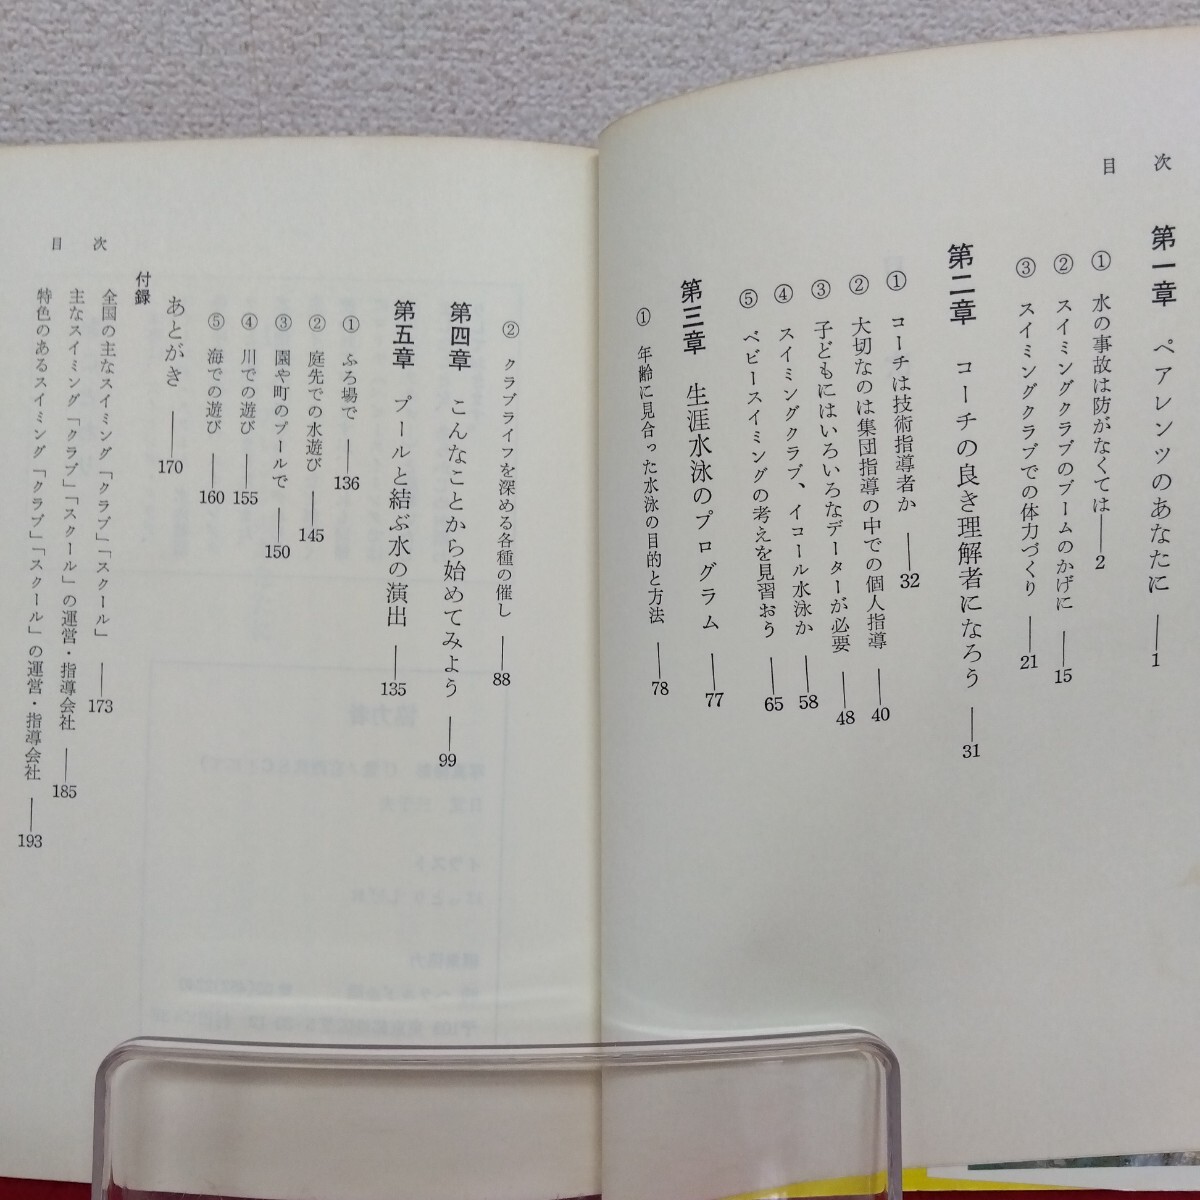 目次
第一章 ペアレンツのあなたに ——1
① 水の事故は防がなくては——2
② スイミングクラブのブームのかげに ——15
③ スイミングクラブでの体力づくり ——21
第二章 コーチの良き理解者になろう ——31
① コーチは技術指導者か ——32
② 大切なのは集団指導の中での個人指導 ——40
③ 子どもにはいろいろなデーターが必要 ——48
④ スイミングクラブ、イコール水泳か ——58
⑤ ベビースイミングの考えを見習おう ——65
第三章 生涯水泳のプログラム ——77
① 年齢に見合った水泳の目的と方法 ——78
② クラブライフを深める各種の催し ——88
第四章 こんなことから始めてみよう ——99
第五章 プールと結ぶ水の演出 ——135
① ふろ場で ——136
② 庭先での水遊び ——145
③ 園や町のプールで ——150
④ 川での遊び ——155
⑤ 海での遊び ——160
あとがき ——170
付録
全国の主なスイミング「クラブ」「スクール」 ——173
主なスイミング「クラブ」「スクール」の運営・指導会社 ——185
特色のあるスイミング「クラブ」「スクール」の運営・指導会社 ——193
目次